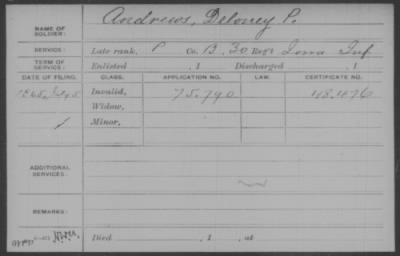 NAME OF SOLDIER: Andrews, Deloney P.
SERVICE: Late rank, P Co. B, 30 Reg't Iowa Inf
TERM OF SERVICE: Enlisted , 1 Discharged , 1
DATE OF FILING. CLASS. APPLICATION NO. LAW. CERTIFICATE NO.
1865, July 5 Invalid, 75.790 48.476
Widow,
Minor,
ADDITIONAL SERVICES:
REMARKS:
Died , 1 , at